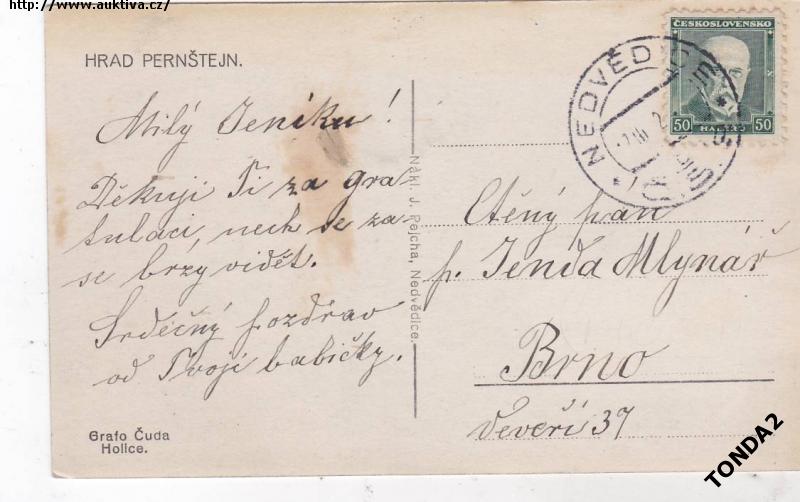 http://www.auktiva.cz/
HRAD PERNŠTEJN.
Milý Jeníku!
Děkuji Ti za gra-
tulaci, nech se za
se brzy vidět.
Srdečný pozdrav
od Tvojí babičky.
Grafo Čuda
Holice.
Nákl. J. Pejcha, Nedvědice.
ČESKOSLOVENSKO
50 HALÉŘŮ 50
NEDVĚDICE
Ctěný pan
p. Jenda Mlynář
Brno
Veveří 37
TONDA2